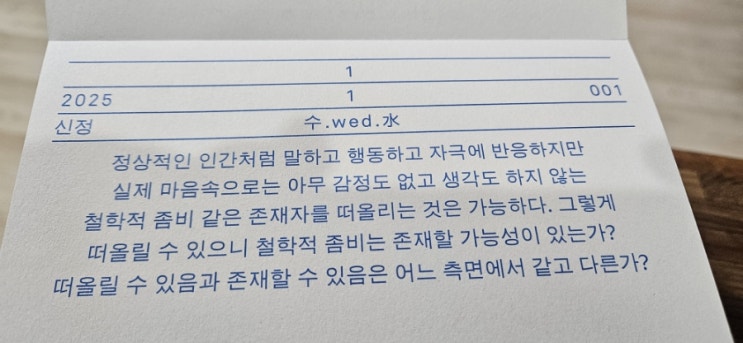 1
2025 1 001
신정 수.wed.水
정상적인 인간처럼 말하고 행동하고 자극에 반응하지만
실제 마음속으로는 아무 감정도 없고 생각도 하지 않는
철학적 좀비 같은 존재자를 떠올리는 것은 가능하다. 그렇게
떠올릴 수 있으니 철학적 좀비는 존재할 가능성이 있는가?
떠올릴 수 있음과 존재할 수 있음은 어느 측면에서 같고 다른가?